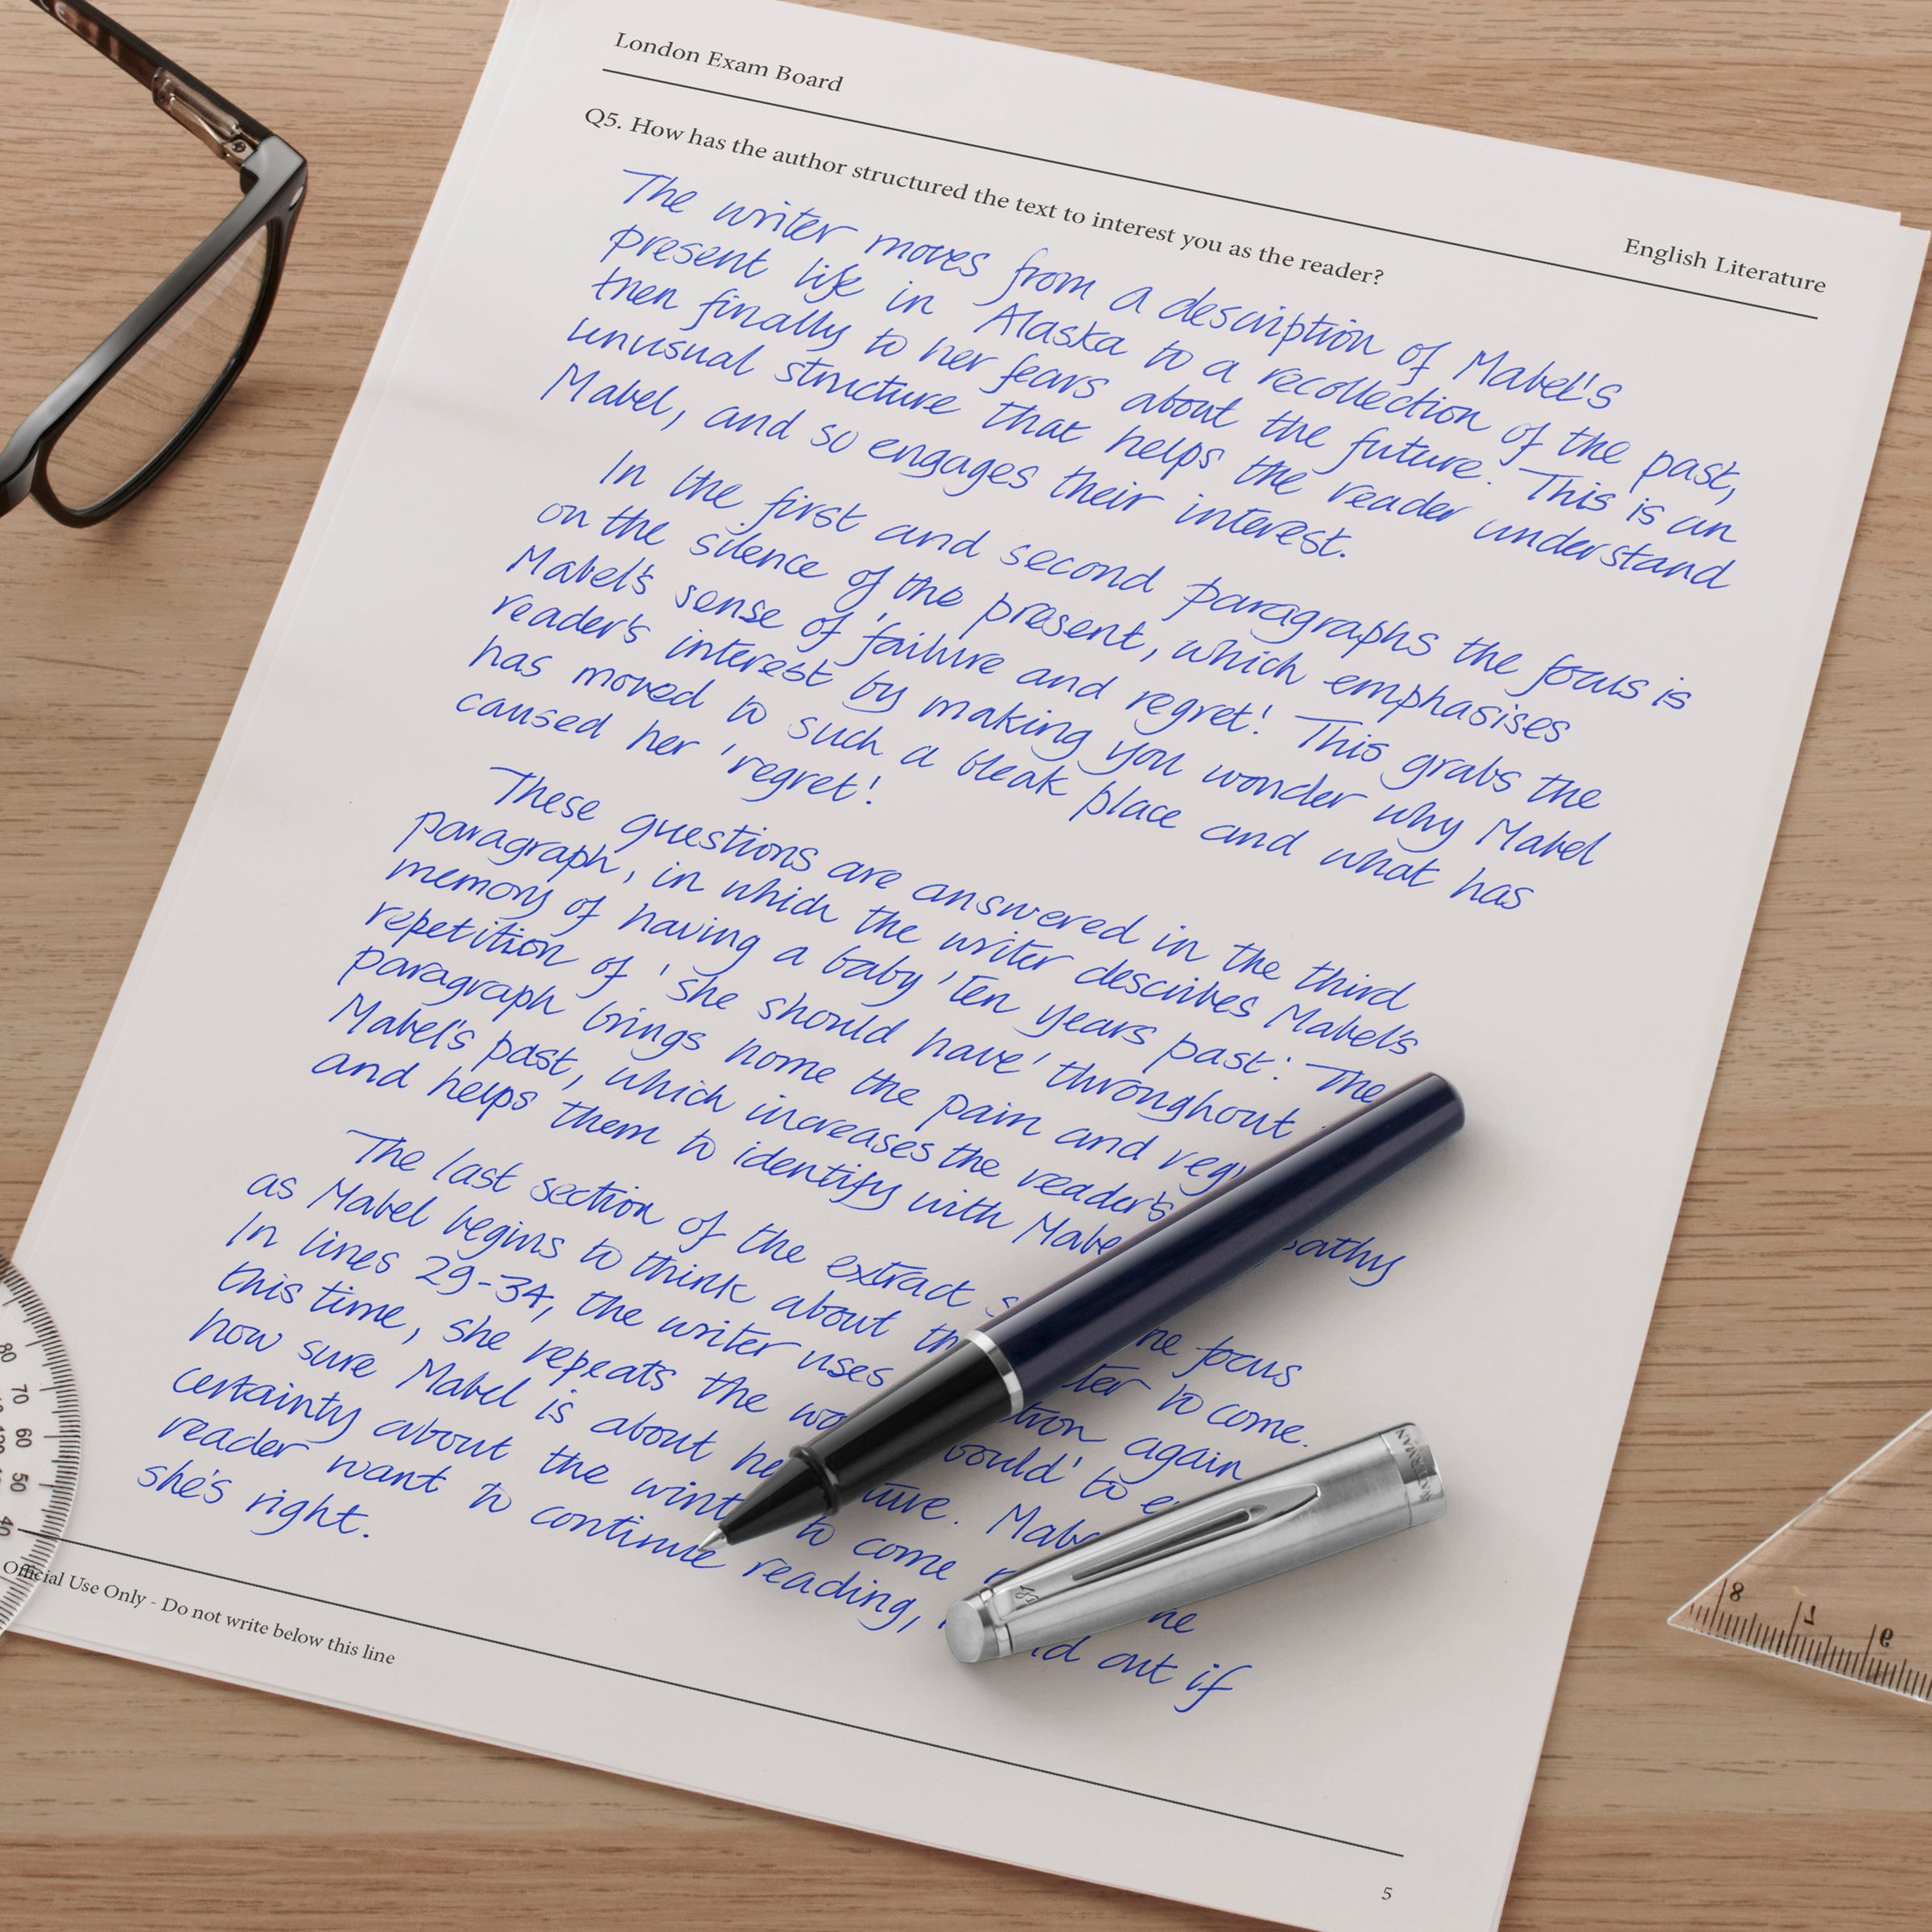 London Exam Board
English Literature
Q5. How has the author structured the text to interest you as the reader?
The writer moves from a description of Mabel's
present life in Alaska to a recollection of the past,
then finally to her fears about the future. This is an
unusual structure that helps the reader understand
Mabel, and so engages their interest.
In the first and second paragraphs the focus is
on the silence of the present, which emphasises
Mabel's sense of 'failure and regret'. This grabs the
reader's interest by making you wonder why Mabel
has moved to such a bleak place and what has
caused her 'regret'.
These questions are answered in the third
paragraph, in which the writer describes Mabel's
memory of having a baby 'ten years past'. The
repetition of 'she should have' throughout
paragraph brings home the pain and
Mabel's past, which increases the reader's
and helps them to identify with
The last section of the extract
focus
as Mabel begins to think about
to come.
In lines 29-34, the writer uses
again
this time, she repeats the
to
how sure Mabel is about
certainty about the
to come
reader want to continue reading,
out if
she's right.
Official Use Only - Do not write below this line
5
WATERMAN
80
70
60
50
40
8
7
6